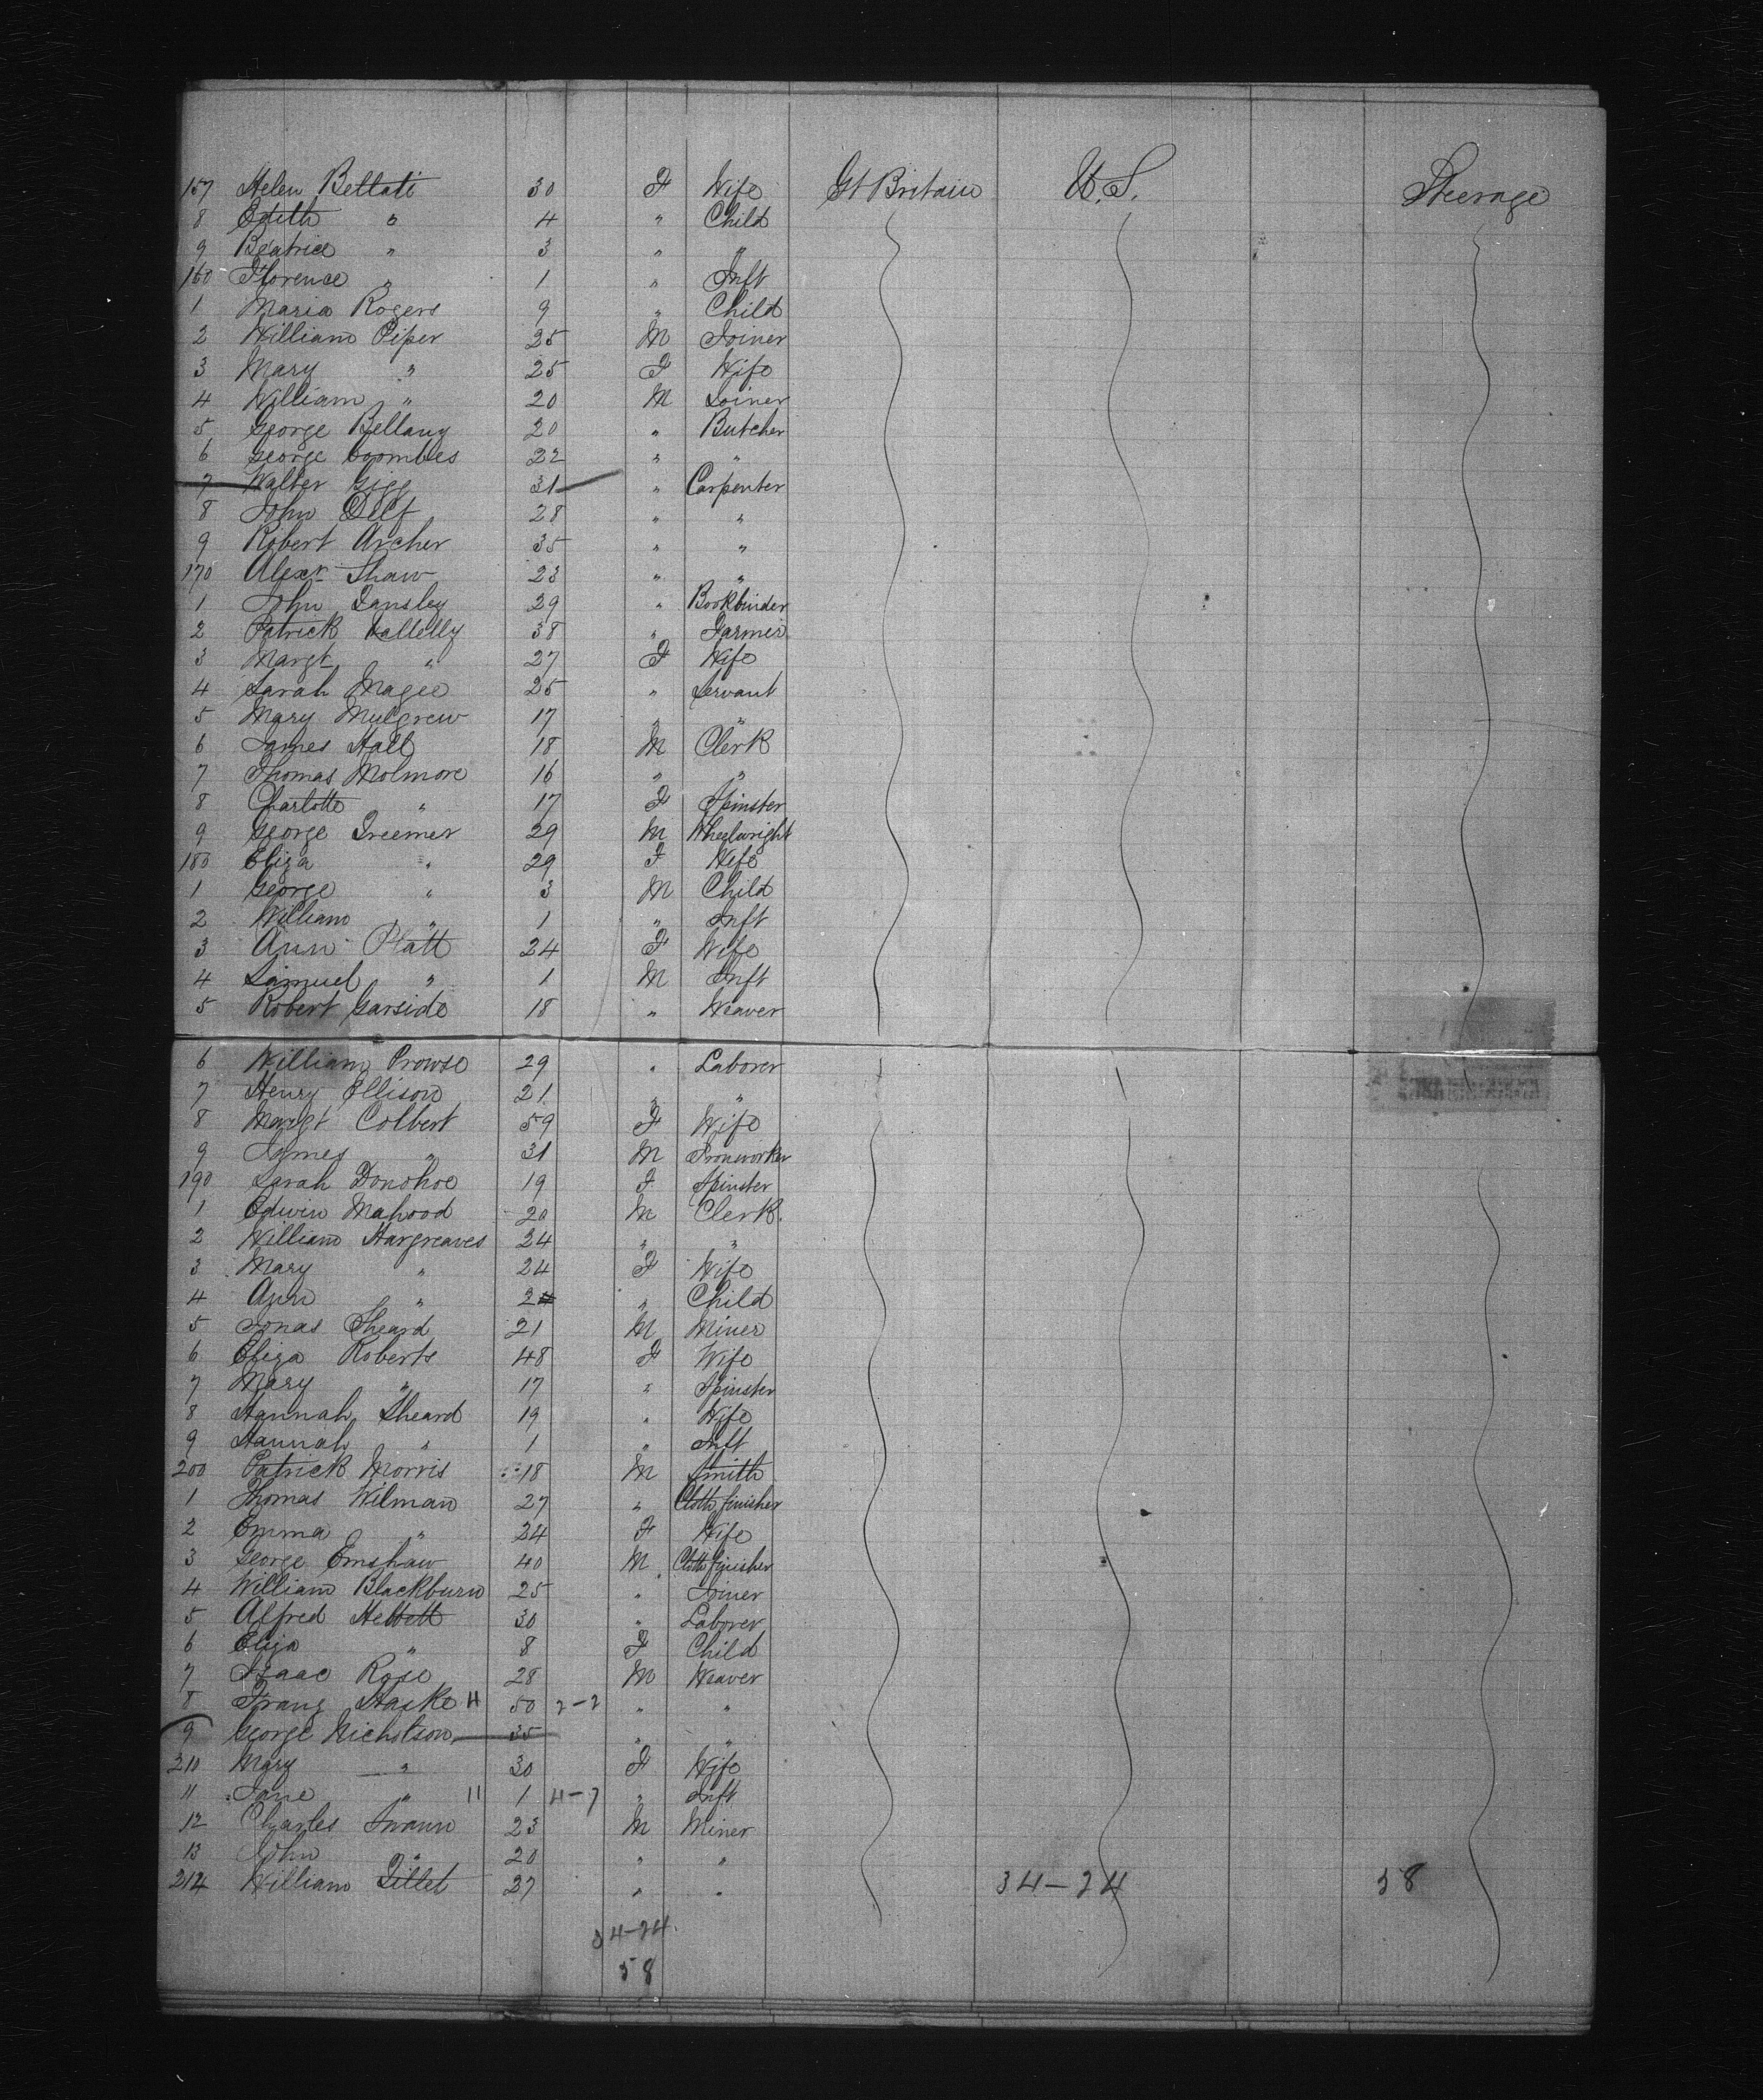 157 Helen Bellati 30 F Wife Gt Britain U.S. Steerage
8 Edith " 4 " Child
9 Beatrice " 3 " "
160 Florence " 1 " Inft
1 Maria Rogers 9 " Child
2 William Piper 25 M Joiner
3 Mary " 25 F Wife
4 William " 20 M Joiner
5 George Bellany 20 " Butcher
6 George Coombes 22 " "
7 Walter Gigg 31 " Carpenter
8 John Delf 28 " "
9 Robert Archer 35 " "
170 Alexr Shaw 23 " "
1 John Dansley 29 " Bookbinder
2 Patrick Vallelly 38 " Farmer
3 Margt " 27 F Wife
4 Sarah Magee 25 " Servant
5 Mary Mulgrew 17 " "
6 James Hall 18 M Clerk
7 Thomas Molmore 16 " "
8 Charlotte " 17 F Spinster
9 George Greemer 29 M Wheelwright
180 Eliza " 29 F Wife
1 George " 3 M Child
2 William " 1 " Inft
3 Ann Platt 24 F Wife
4 Samuel " 1 M Inft
5 Robert Garside 18 " Weaver
6 William Prowse 29 " Laborer
7 Henry Ellison 21 " "
8 Margt Colbert 59 F Wife
9 James " 31 M Ironworker
190 Sarah Donohoe 19 F Spinster
1 Edwin Mahood 20 M Clerk.
2 William Hargreaves 24 " "
3 Mary " 24 F Wife
4 Ann " 2 " Child
5 Jonas Sheard 21 M Miner
6 Eliza Roberts 48 F Wife
7 Mary " 17 " Spinster
8 Hannah Sheard 19 " Wife
9 Hannah " 1 " Inft
200 Patrick Morris 18 M Smith
1 Thomas Wilman 27 " Cloth finisher
2 Emma " 24 F Wife
3 George Emshaw 40 M Cloth finisher
4 William Blackburn 25 " Joiner
5 Alfred Hebbett 30 " Laborer
6 Eliza " 8 F Child
7 Isaac Rose 28 M Weaver
8 Franz Haske 11 50 2-2 " "
9 George Nicholson 35 " "
210 Mary " 30 F Wife
11 Jane " 11 1 4-7 " Inft
12 Charles Swann 23 M Miner
13 John " 20 " "
214 William Tillet 27 " " 34-24 58
34-24.
58